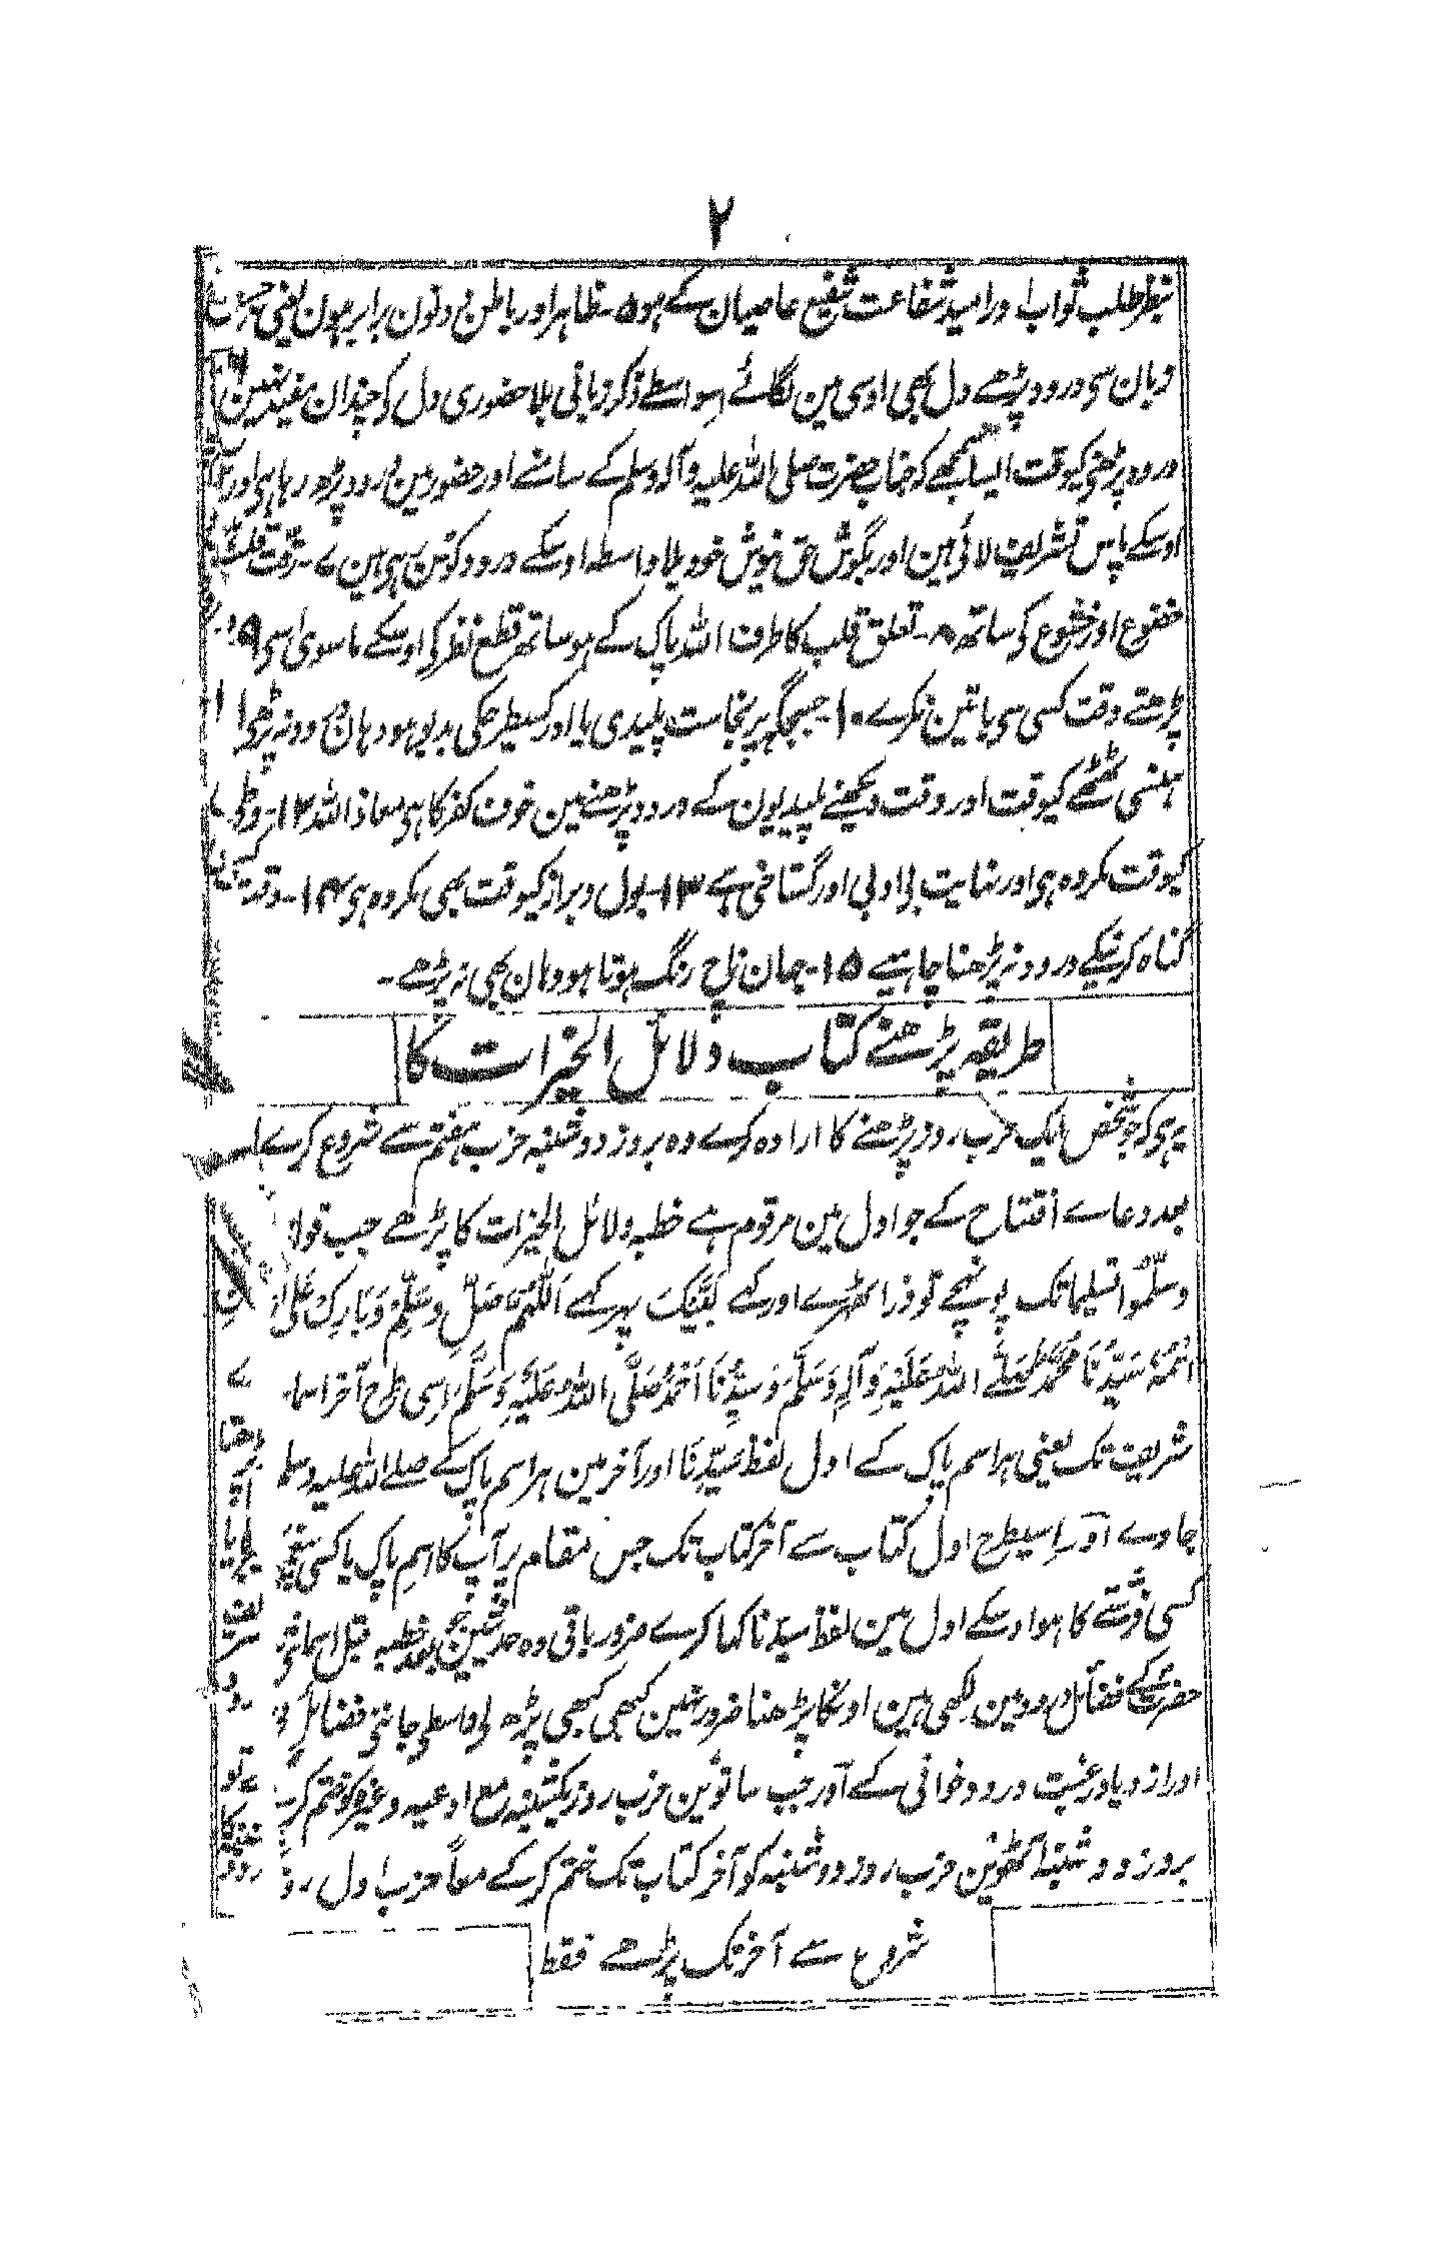 ۲
بنظر طلب ثواب اور امید شفاعت شفیع عاصیان کے ہو ۵۔ ظاہر اور باطن دونون برابر ہون یعنی
زبان سی درود پڑھے دل بھی اوسی مین لگائے اسواسطے ذکر زبانی بلا حضوری دل کو چندان مفید نہین
درود پڑہنی کیوقت ایسا سمجھے کہ جناب حضرت صلی اللہ علیہ وآلہ وسلم کے سامنے اور حضور مین درود پڑھ رہا ہی اور
اوسکے پاس تشریف لائی ہین اور بگوش حق نیوش خود بلا واسطہ اوسکے درود کو سن رہی ہین ۷۔ رقت قلب
خضوع اور خشوع کی ساتھ ۸۔ تعلق قلب کا طرف اللہ پاک کے ہو ساتھ قطع نظر کی اوسکے ماسوی اسی ۹
پڑھتے وقت کسی سی باتین نکرے ۱۰۔ جسجگہ پر نجاست پلیدی یا اور کسیطرحکی بدبو ہو وہان درود نہ پڑھی ۱۱
ہنسی ٹھٹھے کیوقت اور وقت دیکھنے پلیدیون کے درود پڑھنے مین خوف کفر کا ہی معاذ اللہ ۱۲۔
کیوقت مکروہ ہی اور نہایت بی ادبی اور گستاخی ہے ۱۳۔ بول و براز کیوقت بھی مکروہ ہی ۱۴۔ وقت
گناہ کرنیکے درود نہ پڑھنا چاہیے ۱۵۔ جہان ناچ رنگ ہوتا ہو وہان بھی نہ پڑھے ۔
طریقہ پڑھنے کتاب دلائل الخیرات کا
یہ ہی کہ جو شخص ایک حزب روز پڑھنے کا ارادہ کرے وہ بروز دوشنبہ حزب ہفتم سے شروع کرے
بعد دعاے افتتاح کے جو اول مین مرقوم ہے خطبہ دلائل الخیرات کا پڑھے جب
وسلّموا تسلیما تک پونہچے تو ذرا ٹھہرے اور کہے لَبَّیْکَ پہر کہے اَللّٰهُمَّ صَلِّ وَسَلِّمْ وَبَارِكْ عَلٰی
سَیِّدُنَا مُحَمَّدٌ صَلَّی اللهُ عَلَیْهِ وَآلِهِ وَسَلَّمَ وَسَیِّدُنَا اَحْمَدُ صَلَّی اللهُ عَلَیْهِ وَسَلَّمَ اِسی طرح آخر
شریف تک یعنی ہر اسم پاک کے اول لفظ سَیِّدُنَا اور آخر مین ہر اسم پاک کے صلے اللہ علیہ وسلم
جاوے اور اِسیطرح اول کتاب سے آخر کتاب تک جس مقام پر آپ کا اسمِ پاک یا کسی
کسی فرشتے کا ہو اوسکے اول مین لفظ سیدنا کہا کرے ضرور باقی وہ حدیثین جو بعد خطبہ قبل
حضرت کے فضائل درود مین لکھی ہین اونکا پڑھنا ضرور نہین کبھی کبھی پڑھ لی واسطی جاننی فضائل
اور ازدیاد رغبت درود خوانی کے اور جب ساتوین حزب روز یکشنبہ مع ادعیہ وغیرہ ختم کرے تو
بروز دوشنبہ آٹھوین حزب روز دوشنبہ کو آخر کتاب تک ختم کر کے معاً حزب اول
شروع سے آخر تک پڑھے فقط